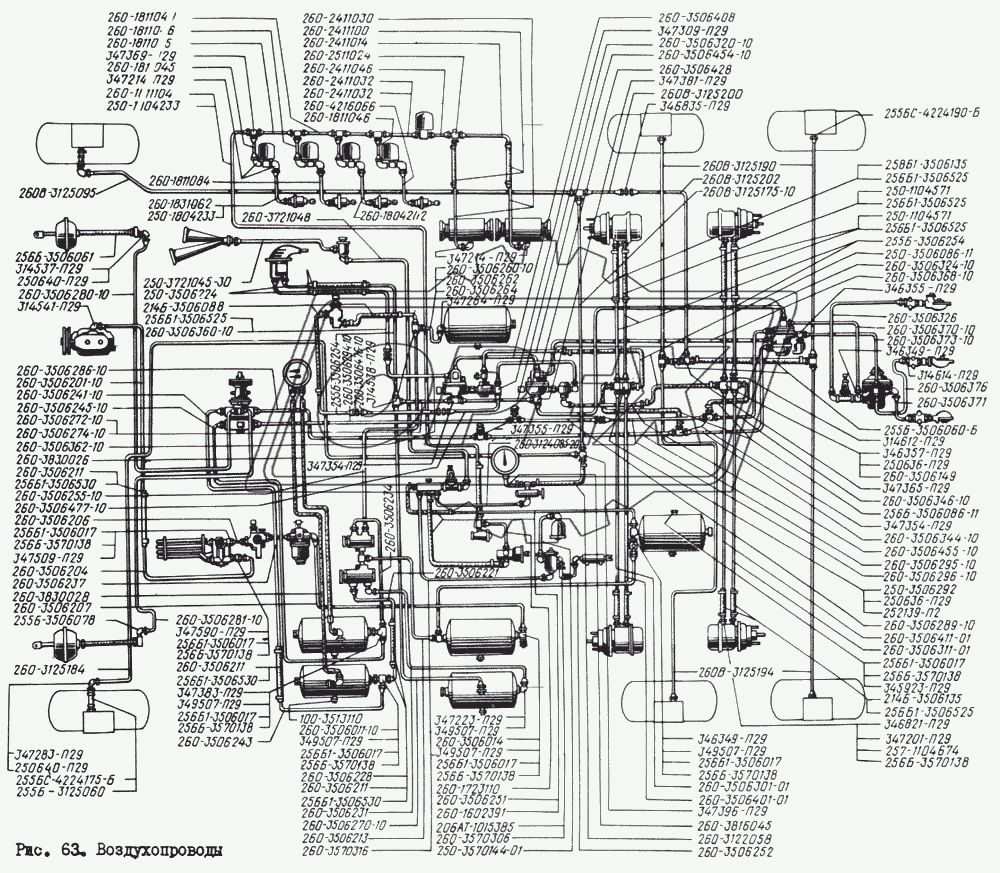 260-1811041
260-1811046
260-1811045
347369-П29
260-1811045
347214-П29
260-1111104
250-1104233
260-2411030
260-2411100
260-2411014
260-2511024
260-2411046
260-2411032
260-2411032
260-4216066
260-1811046
260-3506408
347309-П29
260-3506320-10
260-3506454-10
260-3506428
347381-П29
260В-3125200
346835-П29
255БС-4224190-Б
260В-3125095
260-1811084
260-1831062
250-1804233
260-3721048
260-1804242
260В-3125190
260В-3125202
260В-3125175-10
25861-3506135
256Б1-3506525
250-1104571
256Б1-3506525
250-1104571
256Б1-3506525
255Б-3506254
250-3506086-11
260-3506324-10
260-3506368-10
346355-П29
260-3506326
260-3506370-10
260-3506373-10
346349-П29
314614-П29
260-3506376
260-3506371
255Б-3506061
314537-П29
250640-П29
260-3506280-10
314541-П29
250-3721045-30
250-3506224
214Б-3506088
256Б1-3506525
260-3506360-10
347214-П29
260-3506260-10
260-3506262
260-3506264
347264-П29
255Б-3506254
260-3506094-10
260-3506476-10
314538-П29
260-3506286-10
260-3506201-10
260-3506241-10
260-3506245-10
260-3506272-10
260-3506274-10
260-3506362-10
260-3830026
260-3506211
256Б1-3506530
260-3506255-10
260-3506477-10
260-3506206
256Б1-3506017
256Б-3570138
347509-П29
260-3506204
260-3506237
260-3830028
260-3506207
255Б-3506078
347354-П29
347355-П29
260-3124085-20
260-3506234
260-3506221
255Б-3506060-Б
314612-П29
346357-П29
250636-П29
260-3506149
347365-П29
260-3506346-10
256Б-3506086-11
347354-П29
260-3506344-10
260-3506455-10
260-3506295-10
260-3506296-10
250-3506292
250636-П29
252139-П2
260-3506289-10
260-3506411-01
260-3506311-01
256Б1-3506017
256Б-3570138
345923-П29
214Б-3506135
256Б1-3506525
346821-П29
347201-П29
257-1104674
256Б-3570138
260В-3125194
260-3506281-10
347590-П29
256Б1-3506017
256Б-3570138
260-3506211
256Б1-3506530
347383-П29
349507-П29
256Б1-3506017
256Б-3570138
260-3506243
260-3125184
347283-П29
250640-П29
255БС-4224175-Б
255Б-3125060
100-3513110
260-3506011-10
349507-П29
256Б1-3506017
256Б-3570138
260-3506228
260-3506211
256Б1-3506530
260-3506231
260-3506270-10
260-3506213
260-3570316
347223-П29
349507-П29
260-3506014
349507-П29
256Б1-3506017
256Б-3570138
260-1723110
260-3506251
260-1602391
206АТ-1015385
260-3570306
250-3570144-01
346349-П29
349507-П29
256Б1-3506017
256Б-3570138
260-3506301-01
260-3506401-01
347396-П29
260-3816045
260-3122058
260-3506252
Рис. 63. Воздухопроводы